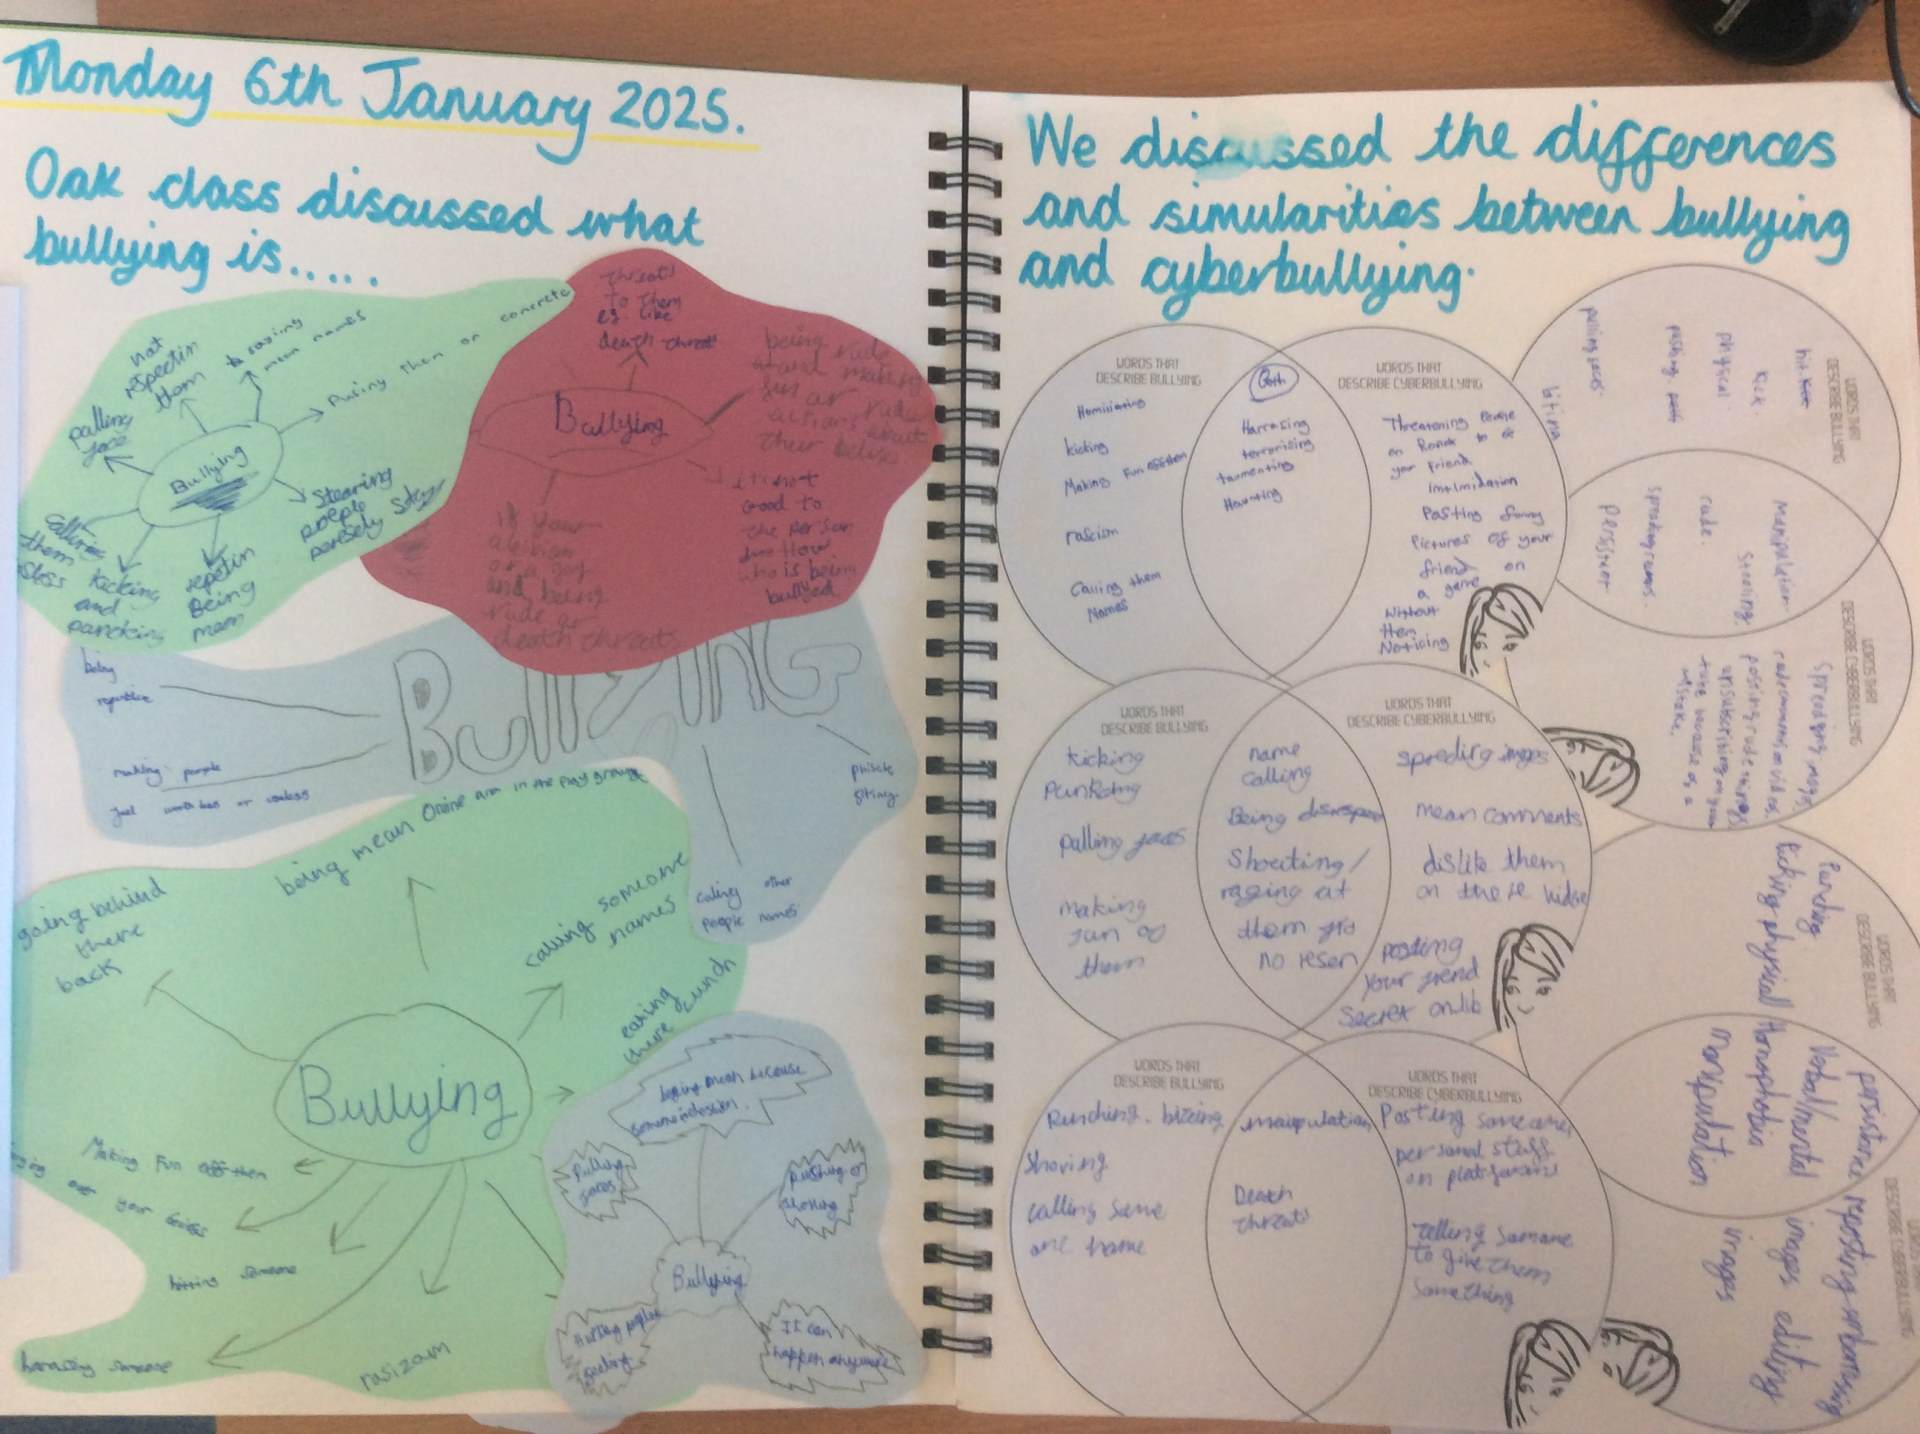 Monday 6th January 2025.
Oak class discussed what
bullying is.....
Bullying
not
rspectin
them
to saying
mean names
Pusing them on concrete
palling
face
Stearing
poeple
kicking
and
panoking
repetin
Being
mean
Bullying
threat
to them
eg like
death threat
being rude
and making
fun or rude
actions about
their
it's not
Good to
the person
who is being
bullyed
if your
and being
rude or
death threats
BullYING
being
making people
feel worthless or useless
calling other
people names
Bullying
going behind
there
back
being mean Online and in the play ground
calling someone
names
eating
there lunch
Making Fun off them
hitting someone
rasizam
Bullying
being mean because
pulling
faces
pushing or
shoving
It can
happen anywhere
We discussed the differences
and simularities between bullying
and cyberbullying.
WORDS THAT
DESCRIBE BULLYING
kicking
Making Fun off them
rascism
Calling them
Names
Both
Harrasing
terrorising
taumenting
Haunting
WORDS THAT
DESCRIBE CYBERBULLYING
Threatoning People
on Roblox to be
your friend
Intimidation
Posting funny
Pictures of your
friend on
a game
Without
them
Noticing
WORDS THAT
DESCRIBE BULLYING
hit
kick
physical
pulling faces
biting
manipulation
Stealing.
rude.
spreading rumors.
Persistent
WORDS THAT
DESCRIBE CYBERBULLYING
Spreding imags
rude comments on vidios
possing rude things
unsubscribing on your
mistake.
WORDS THAT
DESCRIBE BULLYING
kicking
Punkching
palling faces
making
fun of
them
name
calling
Being disrespect
Shouting/
raging at
them for
no reson
WORDS THAT
DESCRIBE CYBERBULLYING
spreding imges
mean comments
dislike them
on there vidoe
posting
your frend
secret onlin
WORDS THAT
DESCRIBE BULLYING
Punching
kicking physical
persistance
Verbal/mental
Homophobia
Manipulation
WORDS THAT
DESCRIBE CYBERBULLYING
reposting embarrassing
images editing
images
WORDS THAT
DESCRIBE BULLYING
Punching. biteing
Shoving
calling some
one name
manupulation
Death
threats
WORDS THAT
DESCRIBE CYBERBULLYING
Posting someones
personal stuff
on platforms
telling someone
to give them
something